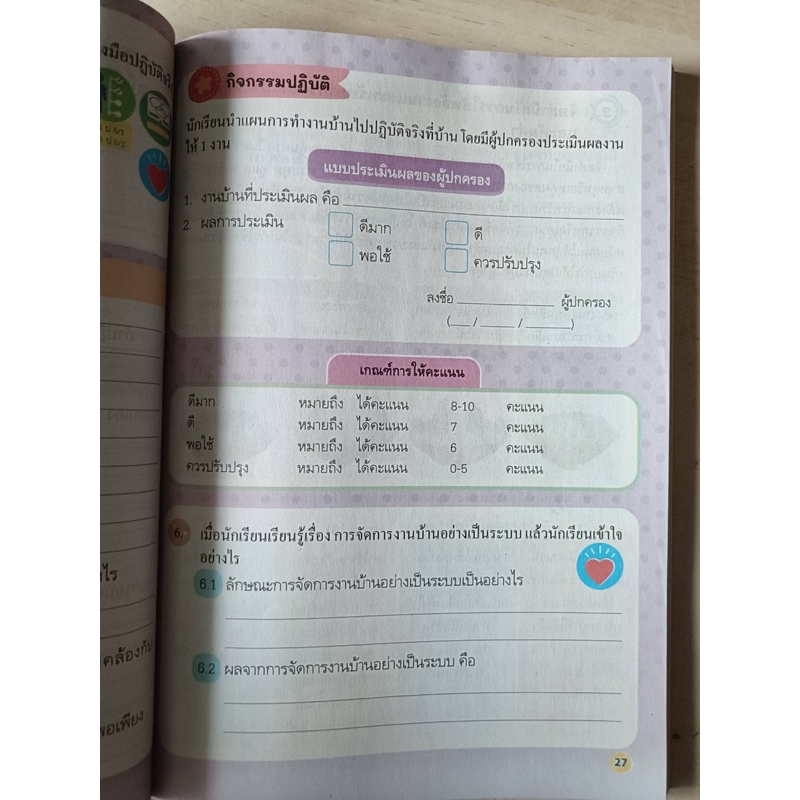 งมือปฏิบัติจริ
ป.5/1
ป.5/2
ไร
คล้องกัน
พอเพียง
กิจกรรมปฏิบัติ
นักเรียนนำแผนการทำงานบ้านไปปฏิบัติจริงที่บ้าน โดยมีผู้ปกครองประเมินผลงาน
ให้ 1 งาน
แบบประเมินผลของผู้ปกครอง
1. งานบ้านที่ประเมินผล คือ
2. ผลการประเมิน ดีมาก ดี
พอใช้ ควรปรับปรุง
ลงชื่อ ผู้ปกครอง
( / / )
เกณฑ์การให้คะแนน
ดีมาก หมายถึง ได้คะแนน 8-10 คะแนน
ดี หมายถึง ได้คะแนน 7 คะแนน
พอใช้ หมายถึง ได้คะแนน 6 คะแนน
ควรปรับปรุง หมายถึง ได้คะแนน 0-5 คะแนน
6. เมื่อนักเรียนเรียนรู้เรื่อง การจัดการงานบ้านอย่างเป็นระบบ แล้วนักเรียนเข้าใจ
อย่างไร
6.1 ลักษณะการจัดการงานบ้านอย่างเป็นระบบเป็นอย่างไร
6.2 ผลจากการจัดการงานบ้านอย่างเป็นระบบ คือ
27